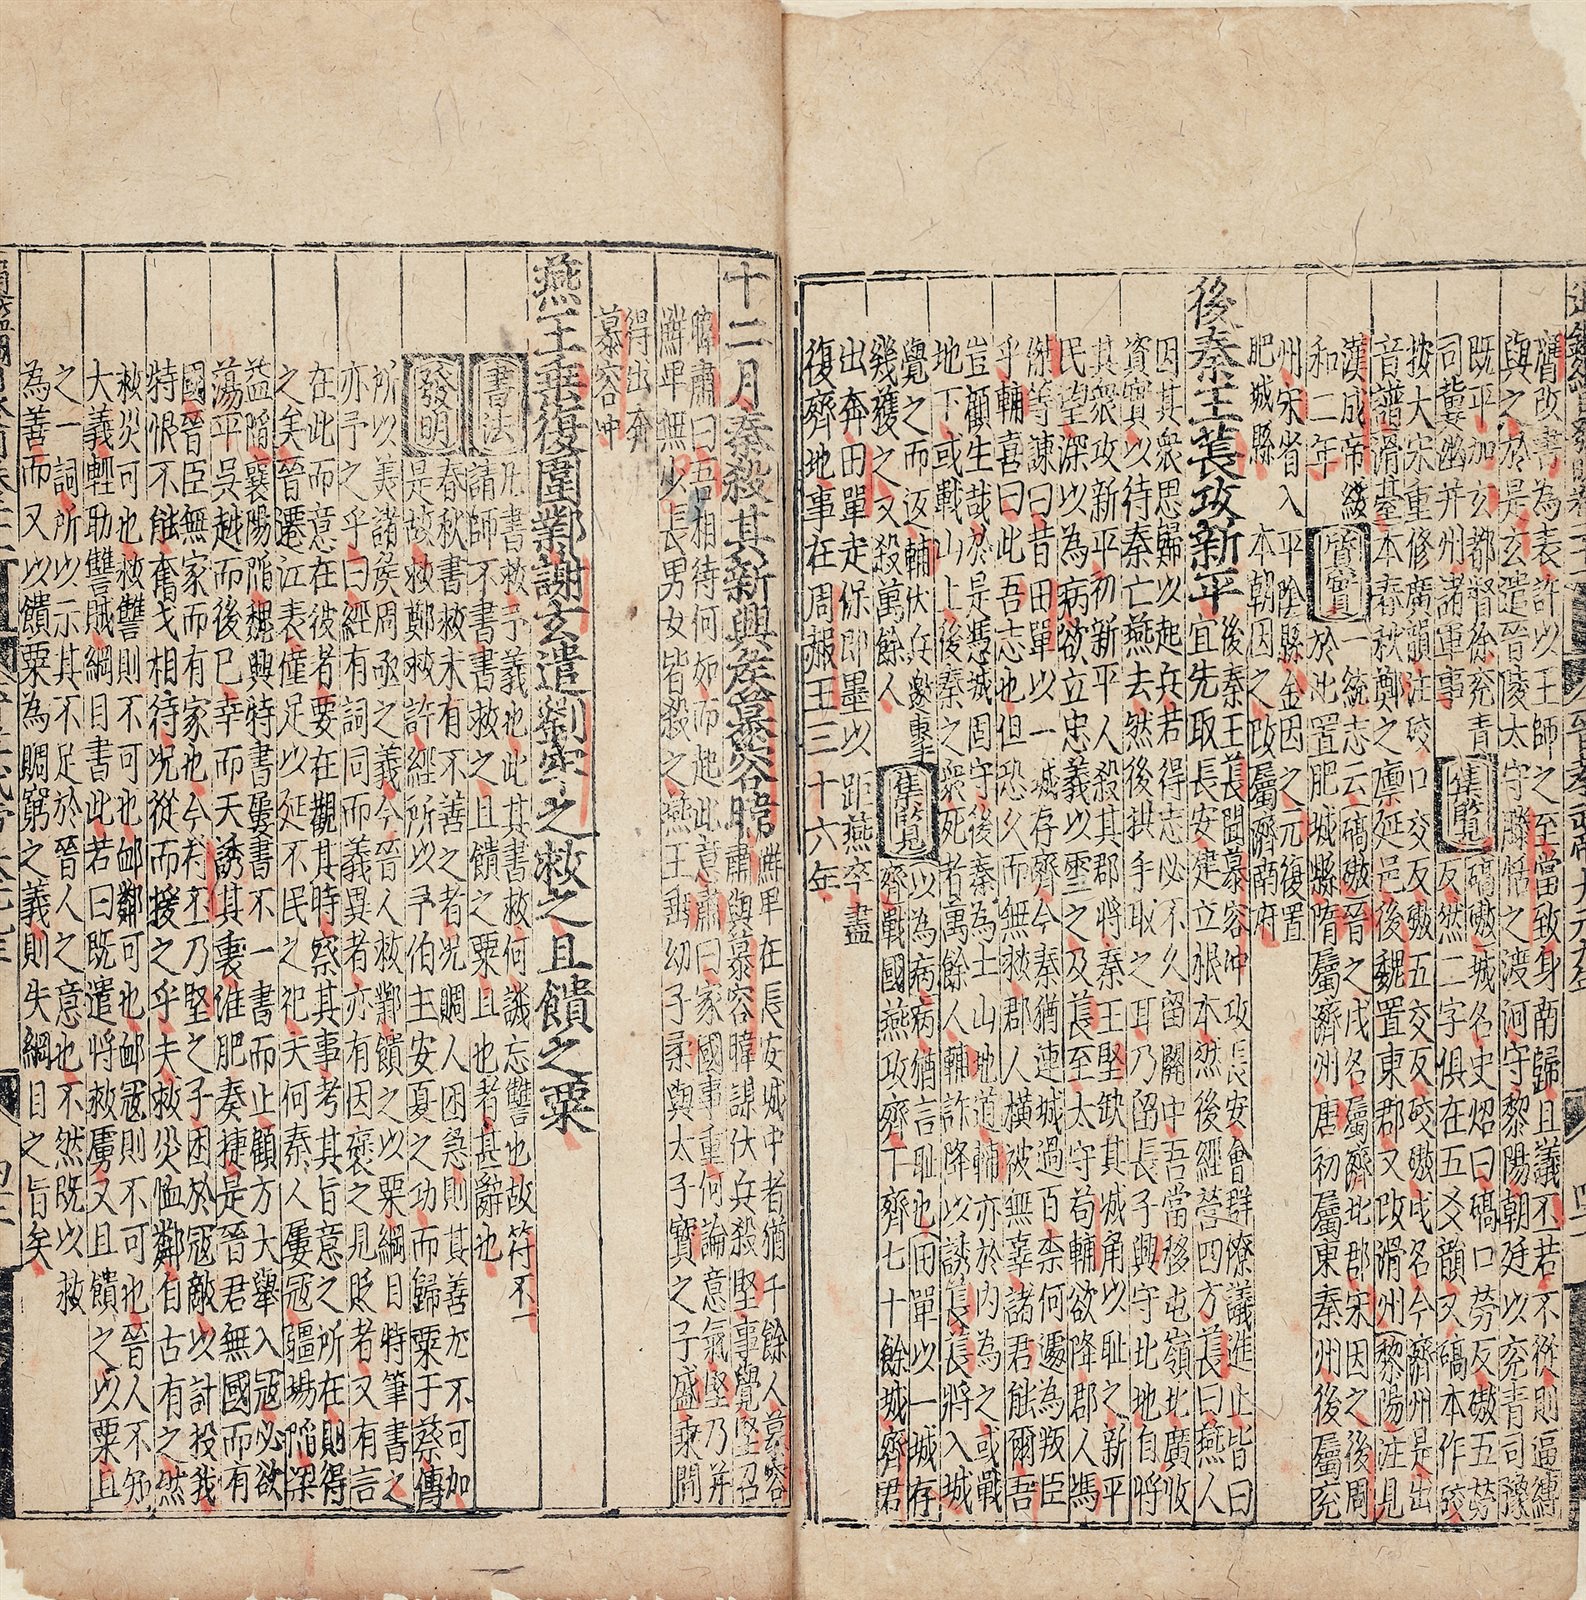 膺改書為表許以王師之至當致身南歸且議丕若不從則逼縛
與之於是玄遣晉陵太守滕恬之渡河守黎陽朝廷以兗青司豫
既平加玄都督徐兗青
司冀幽并州諸軍事
集覽
碻磝城名史炤曰碻口勞反磝五勞
反然二字俱在五爻韻又碻本作磽
按大宋重修廣韻注磽口交反磝五交反磽磝戍名今濟州是出
音譜滑臺本春秋鄭之廩延邑後魏置東郡又改滑州黎陽注見
漢成帝綏
和二年
質實
一統志云碻磝晉之戍名屬濟北郡宋因之後周
於此置肥城縣隋屬濟州唐初屬東秦州後屬兗
州宋省入平陰縣金因之元復置
肥城縣 本朝因之改屬濟南府
後秦王萇攻新平
後秦王萇聞慕容冲攻長安會群僚議進止皆曰
宜先取長安建立根本然後經營四方萇曰燕人
因其衆思歸以起兵若得志必不久留關中吾當移屯嶺北廣收
資實以待秦亡燕去然後拱手取之耳乃留長子興守北地自將
其衆攻新平初新平人殺其郡將秦王堅缺其城角以恥之新平
民望深以為病欲立忠義以雪之及萇至太守苟輔欲降郡人馮
傑等諫曰昔田單以一城存齊今秦猶連城過百柰何遽為叛臣
乎輔喜曰此吾志也但恐久而無救郡人橫被無辜諸君能爾吾
豈顧生哉於是憑城固守後秦為土山地道輔亦於內為之或戰
地下或戰山上後秦之衆死者萬餘人輔詐降以誘萇萇將入城
覺之而返輔伏兵邀擊
幾獲之又殺萬餘人
集覽
以為病病猶言耻也田單以一城存
齊戰國燕攻齊下齊七十餘城齊君
出奔田單走保即墨以距燕卒盡
復齊地事在周赧王三十六年
十二月秦殺其新興侯慕容暐
鮮卑在長安城中者猶千餘人慕容
肅與慕容暐謀伏兵殺堅事覺堅召
暐肅曰吾相待何如而起此意肅曰家國事重何論意氣堅乃并
鮮卑無少長男女皆殺之燕王垂幼子柔與太子寶之子盛乘間
得出奔
慕容冲
燕王垂復圍鄴謝玄遣劉牢之救之且饋之粟
書法
凡書救予義也此其書救何譏忘讐也故苻丕
請師不書書救之且饋之粟且也者甚辭也
發明
春秋書救未有不善之者况賙人困急則其善尤不可加
是故救鄭救許經所以予伯主安夏之功而歸粟于蔡傳
所以美諸侯周亟之義今晉人救鄴饋之以粟綱目特筆書之
亦予之乎曰經有詞同而義異者亦有因褒之見貶者又有言
在此而意在彼者要在觀其時察其事考其旨意之所在則得
之矣晉遷江表僅足以延不民之祀天何秦人屢寇疆場陷梁
益陷襄陽陷魏興特書屢書不一書而止顧方大舉入寇必欲
蕩平吳越而後已幸而天誘其衷淮肥奏捷是晉君無國而有
國晉臣無家而有家也今苻丕乃堅之子困於寇敵以計投我
特恨不能奮戈相待况從而援之乎夫救災恤鄰自古有之然
救災可也救讐則不可也卹鄰可也卹寇則不可也晉人不知
大義輕助讐賊綱目書此若曰既遣將救屬又且饋之以粟且
之一詞所以示其不足於晉人之意也不然既以救
為善而又以饋粟為賙窮之義則失綱目之旨矣